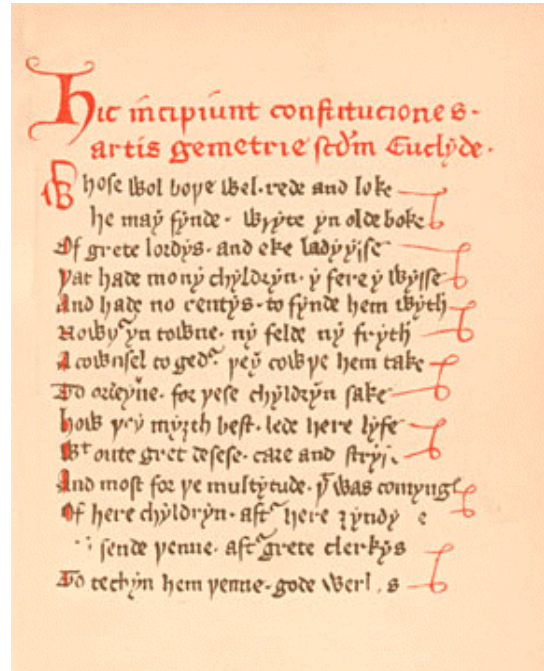 Hic incipiunt constituciones
artis gemetrie scdm Euclyde.
Whose wol boþe wel rede and loke
he may fynde wryte yn olde boke
Of grete lordys and eke ladyysse
þat hade mony chyldryn y fere y wysse
And hade no rentys to fynde hem wyth
Nowþr yn towne ny felde ny fryth
A cownsel to gedr þey cowþe hem take
To ordeyne for þese chyldryn sake
how þey myȝth best lede here lyfe
Wt oute gret desese care and
And most for þe multytude þt was
Of here chyldryn aftr here
sende þenne aftr grete clerkys
To techyn hem þenne gode